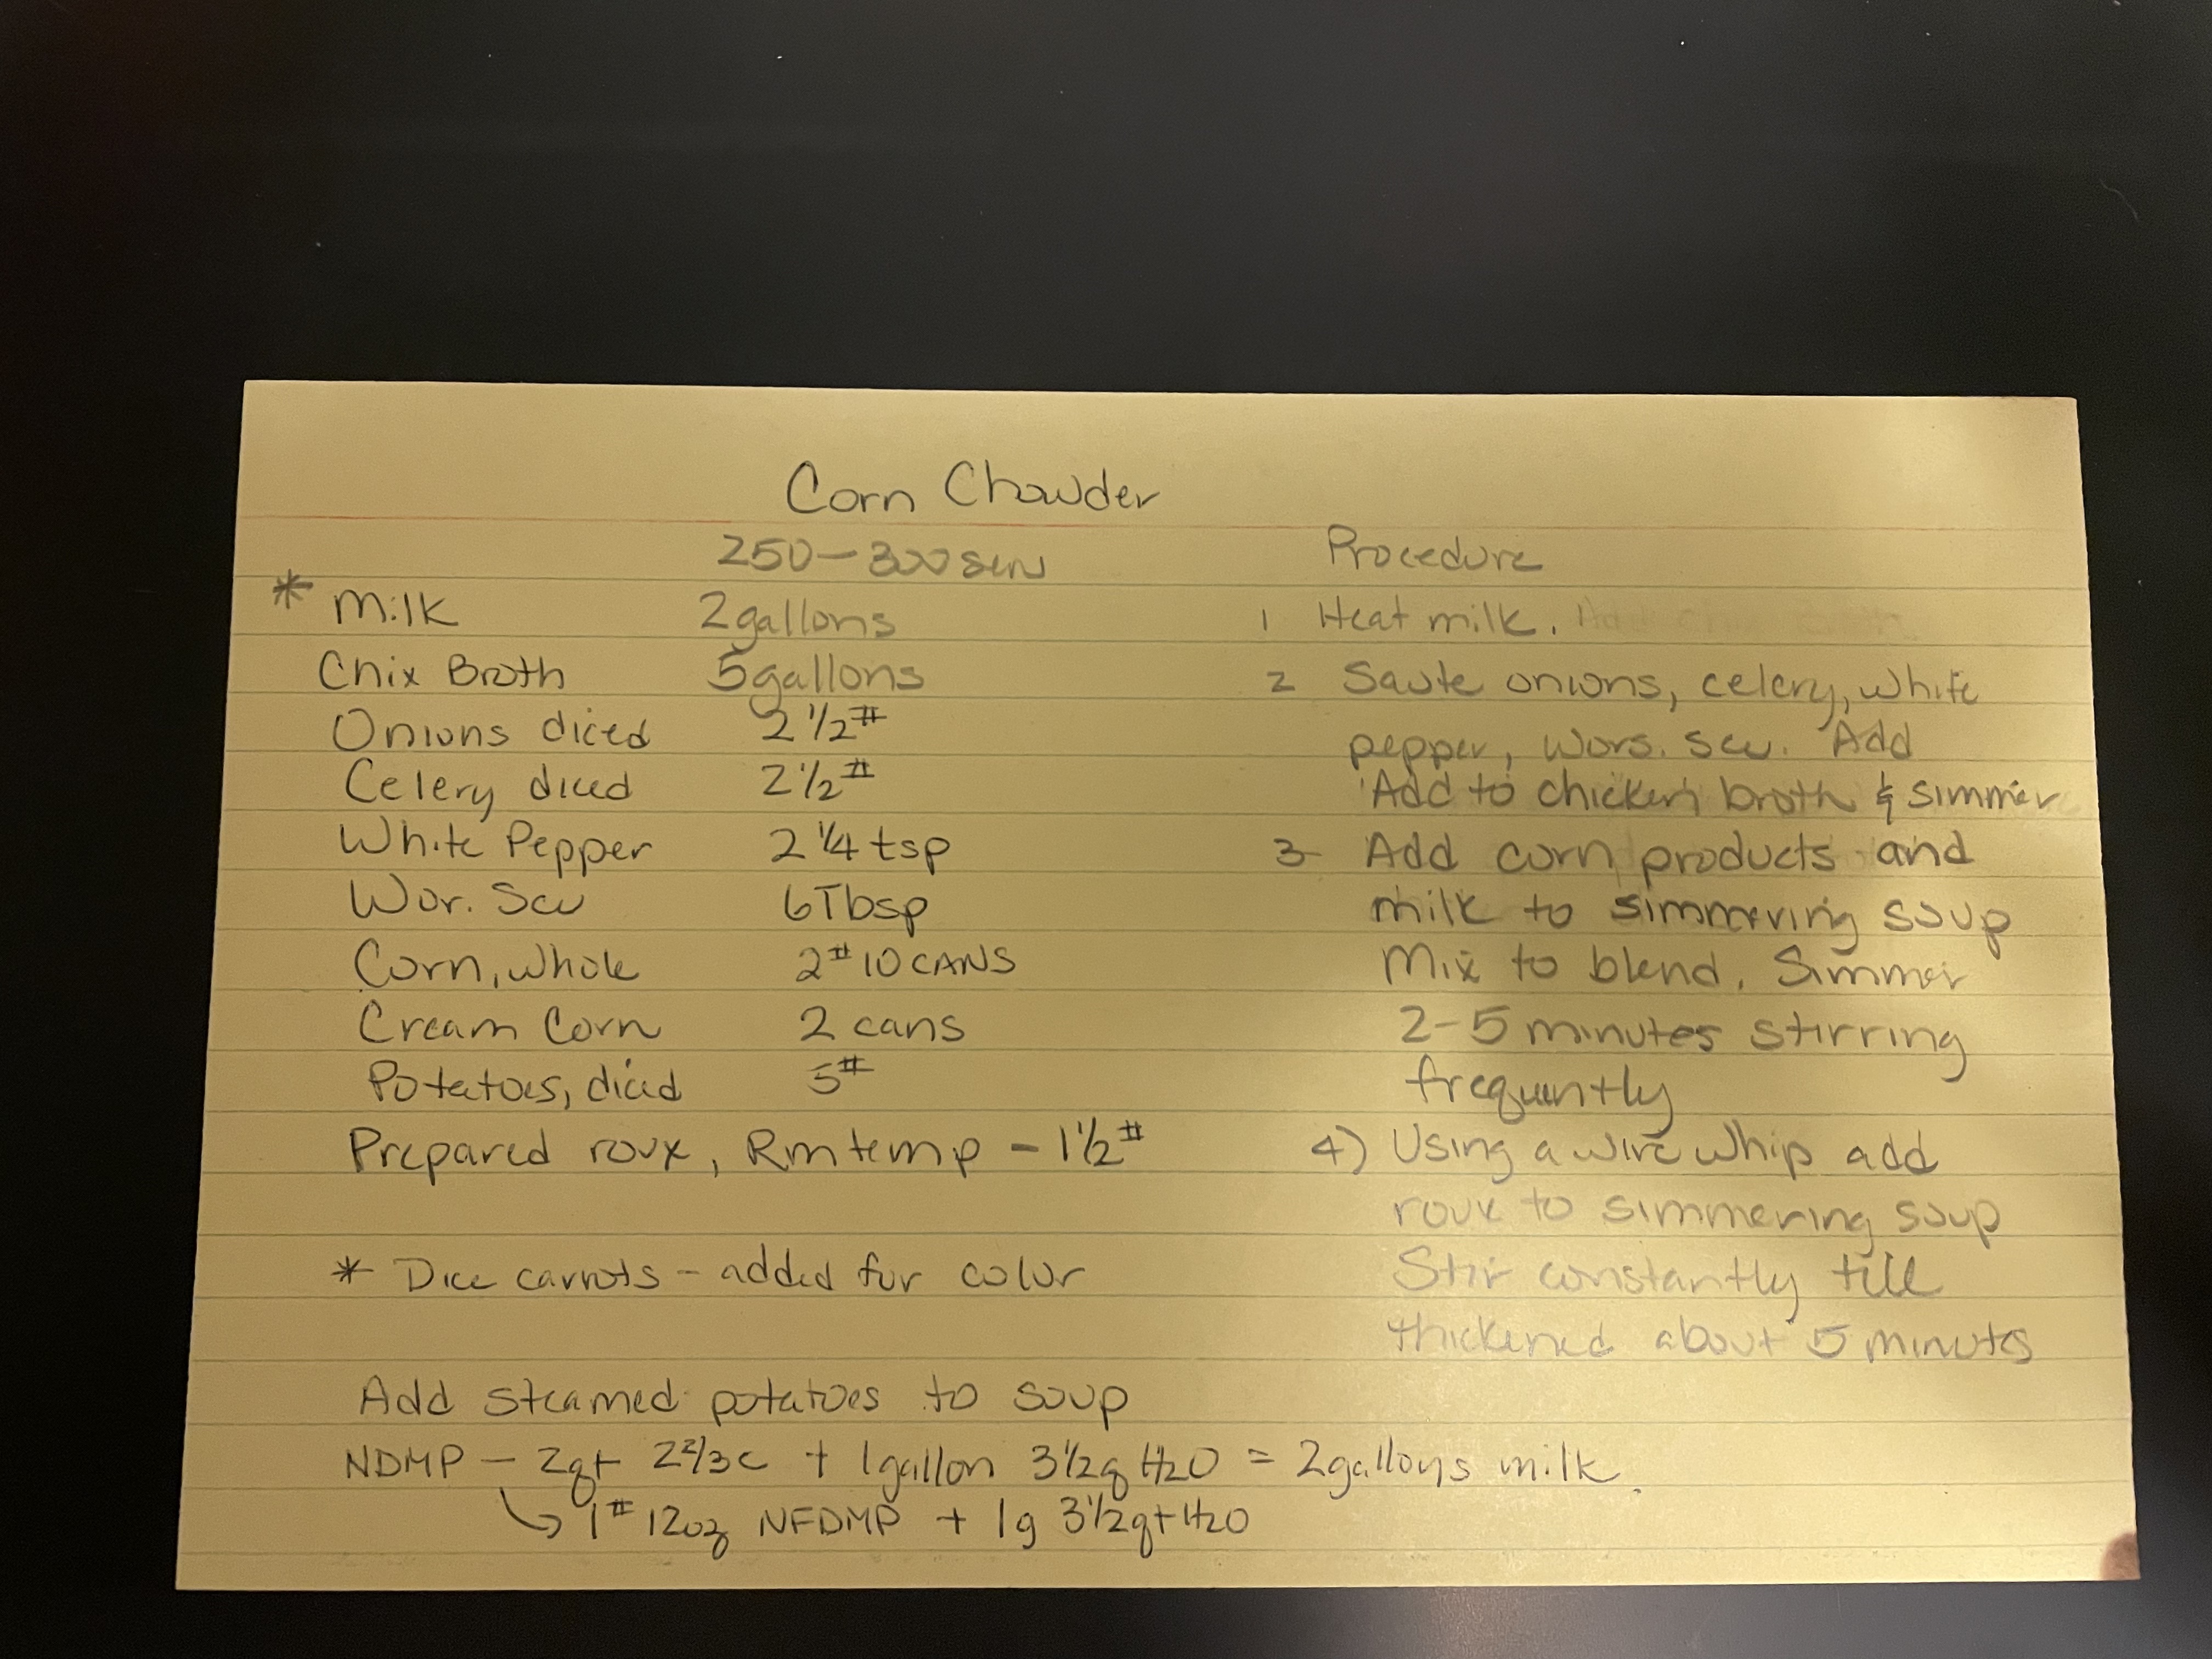 Corn Chowder
250-300 serv
* Milk 2 gallons
Chix Broth 5 gallons
Onions diced 2 1/2#
Celery diced 2 1/2#
White Pepper 2 1/4 tsp
Wor. Sau 6 Tbsp
Corn, whole 2 #10 CANS
Cream Corn 2 cans
Potatoes, diced 5#
Prepared roux, Rm temp - 1 1/2#
* Dice carrots - added for color
Add steamed potatoes to soup
NDMP - 2qt 2 2/3 c + 1 gallon 3 1/2 q H2O = 2 gallons milk.
1# 12oz NFDMP + 1g 3 1/2 qt H2O
Procedure
1 Heat milk.
2 Saute onions, celery, white
pepper, Wors. sau. Add
Add to chicken broth & simmer
3 Add corn products and
milk to simmering soup
Mix to blend. Simmer
2-5 minutes stirring
frequently
4) Using a wire whip add
roux to simmering soup
Stir constantly till
thickened about 5 minutes